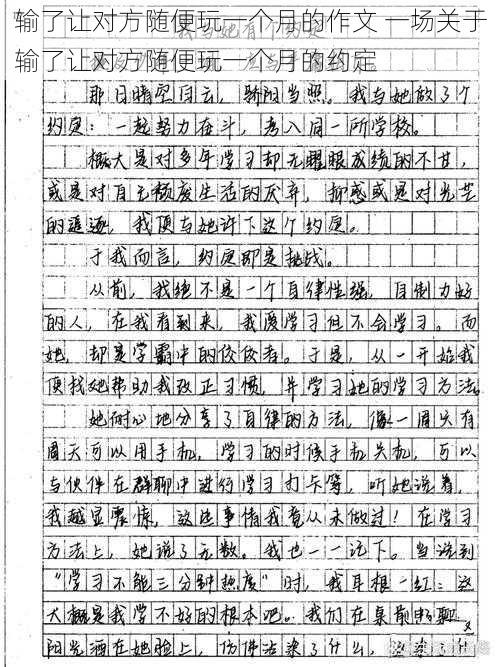 输了让对方随便玩一个月的作文 一场关于
输了让对方随便玩一个月的约定
我与她有个约定
那日晴空白云，骄阳当照。我与她做了个
约定：一起努力奋斗，考入同一所学校。
概大是对多年学习却无耀眼成绩的不甘，
或是对自己颓废生活的厌弃，抑或是对光芒
的追逐，我便与她许下这个约定。
于我而言，约定即是挑战。
从前，我绝不是一个自律性强，自制力好
的人，在我看到来，我爱学习但不会学习。而
她，却是学霸中的佼佼者。于是，从一开始我
便找她帮助我改正习惯，并学习她的学习方法。
她耐心地分享了自律的方法，像一周只有
周天可以用手机，学习的时候手机关机，可以
与伙伴在群聊中进行学习打卡等，听她说着，
我越显震惊，这些事情我竟从未做过！在学习
方法上，她说了无数。我也一一记下。当说到
“学习不能三分钟热度”时，我耳根一红：这
大概是我学不好的根本吧。我们在桌前
阳光洒在她脸上，